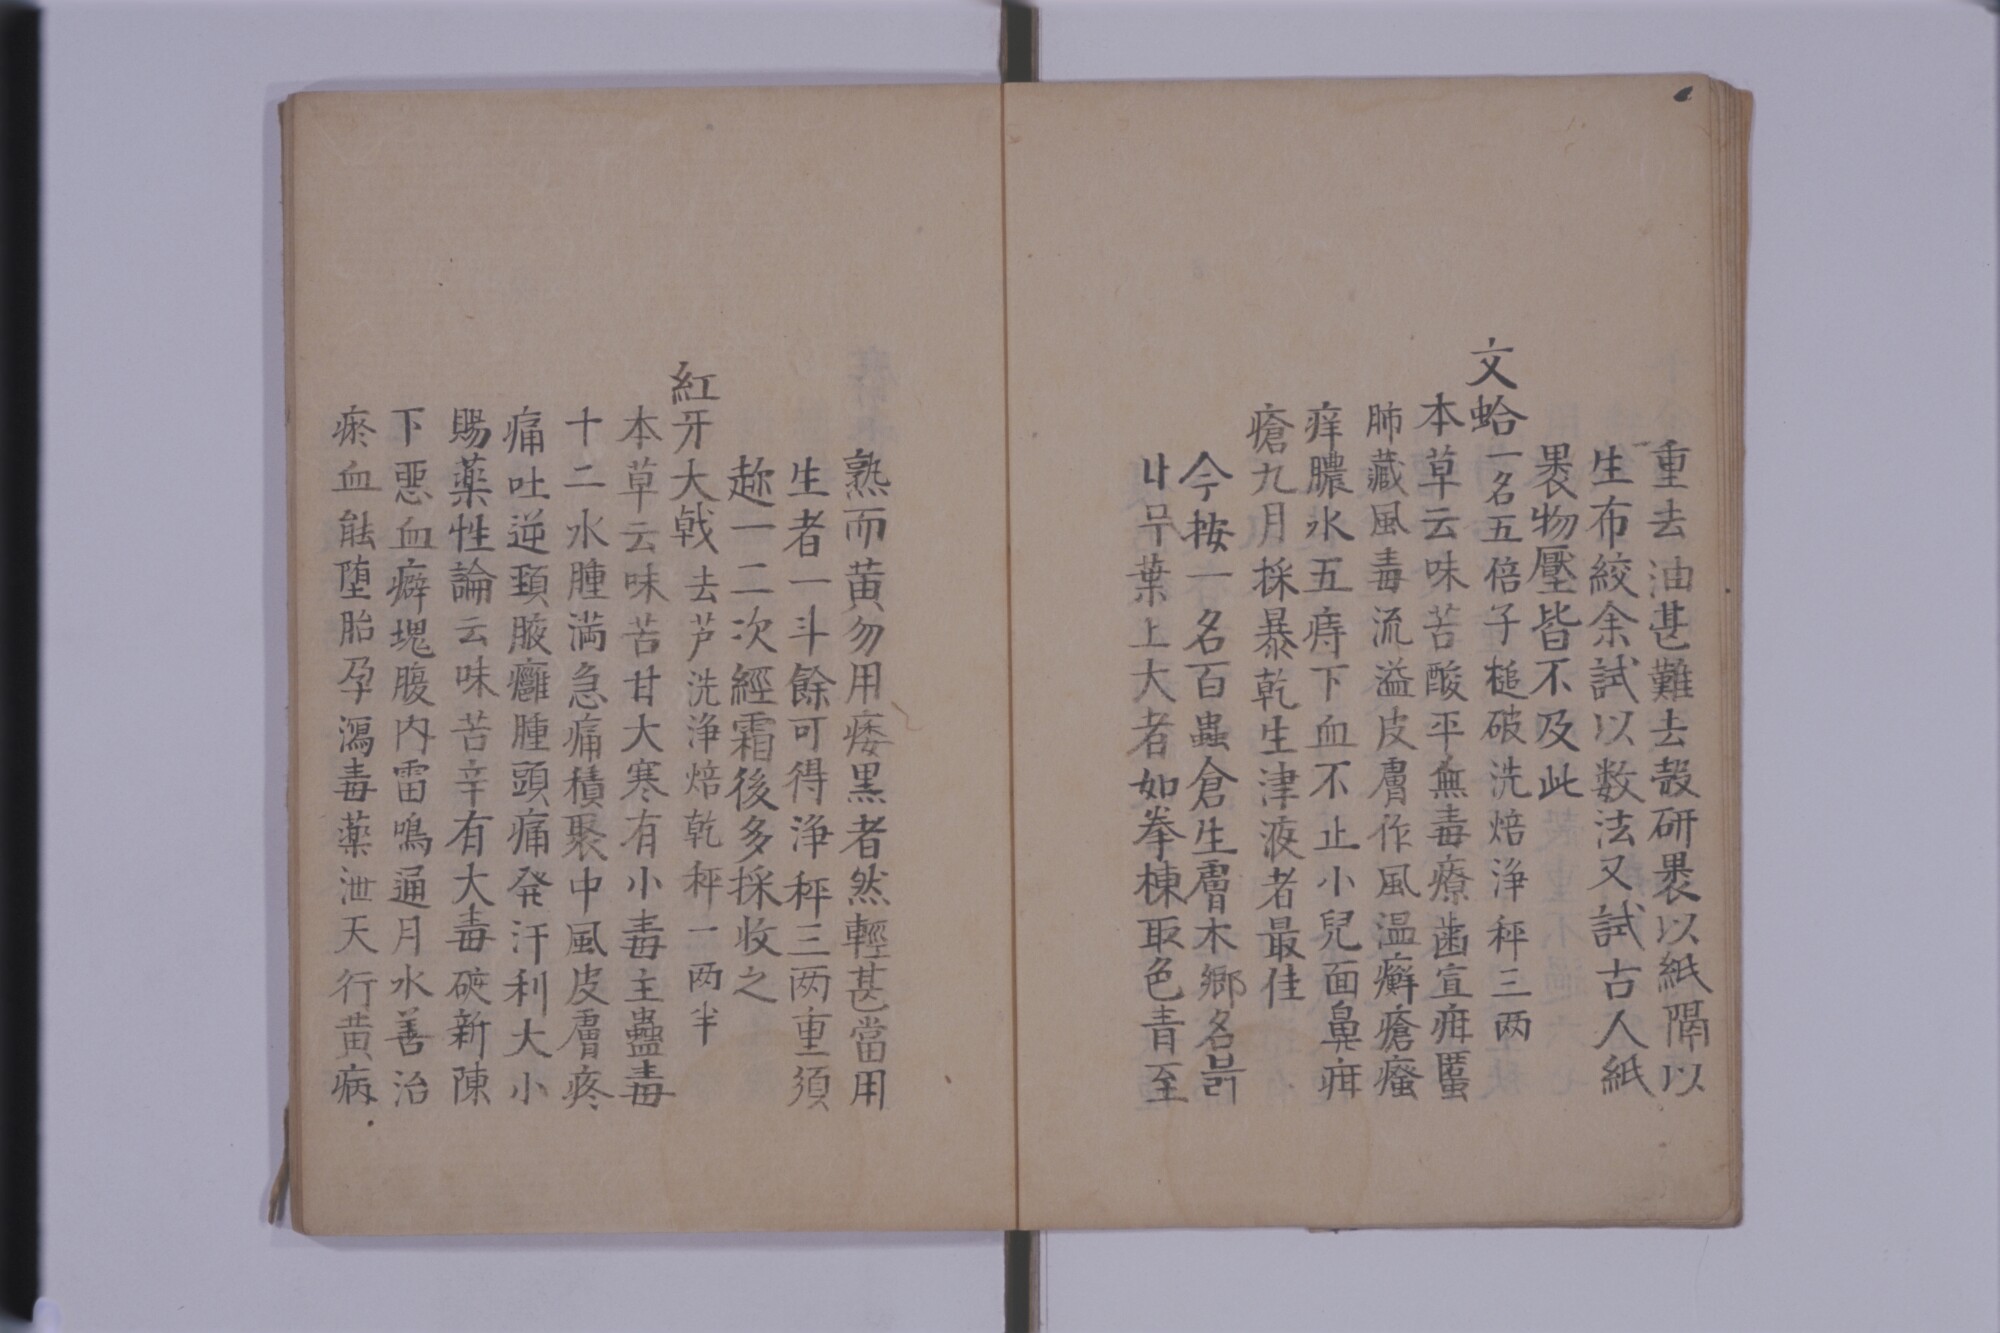 重去油甚難去殼研裹以紙隔以
生布絞余試以数法又試古人紙
裹物壓皆不及此
文蛤一名五倍子槌破洗焙浄秤三两
本草云味苦酸平無毒療齒宣疳䘌
肺藏風毒流溢皮膚作風温癬瘡瘙
痒膿水五痔下血不止小兒面鼻疳
瘡九月採暴乾生津液者最佳
今按一名百蟲倉生膚木郷名븕
나무葉上大者如拳楝取色青至
熟而黄勿用痿黒者然輕甚當用
生者一斗餘可得浄秤三两重須
趂一二次經霜後多採收之
紅牙大戟去芦洗浄焙乾秤一两半
本草云味苦甘大寒有小毒主蠱毒
十二水腫満急痛積聚中風皮膚疼
痛吐逆頸腋癰腫頭痛発汗利大小
賜薬性論云味苦辛有大毒破新陳
下惡血癖塊腹内雷鳴通月水善治
瘀血能堕胎孕瀉毒薬泄天行黄病